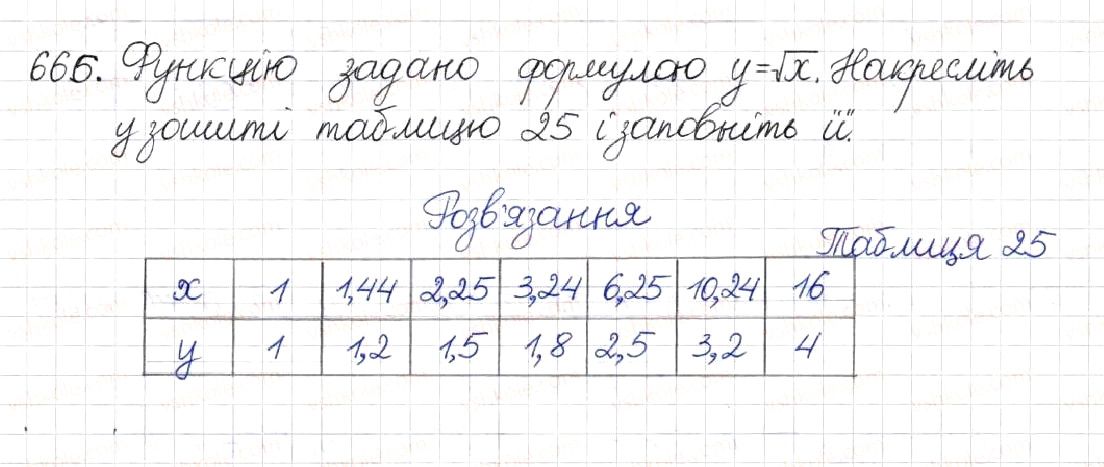 665. Функцію задано формулою y=√x. Накресліть
у зошиті таблицю 25 і заповніть її.
Розв'язання
Таблиця 25
x 1 1,44 2,25 3,24 6,25 10,24 16
y 1 1,2 1,5 1,8 2,5 3,2 4